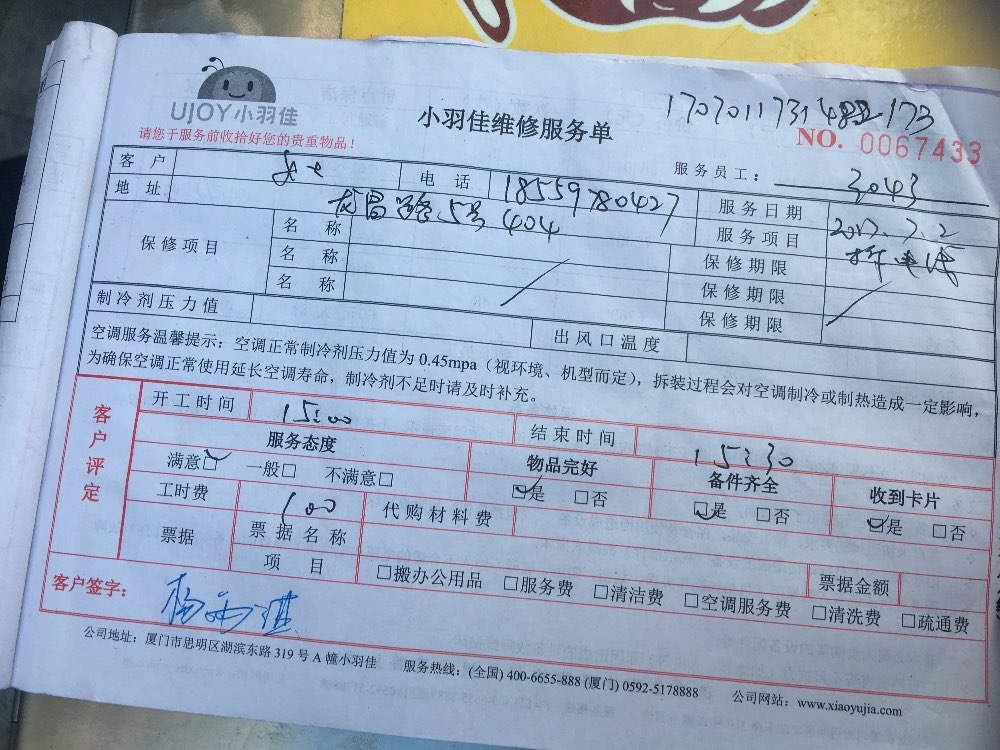 UJOY小羽佳
小羽佳维修服务单
请您于服务前收拾好您的贵重物品！
NO. 0067433
服务员工： 3043
客户 电话 18559780427 服务日期 2017.7.2
地址 龙昌路5号404 服务项目
保修项目 名称 保修期限
名称 保修期限
名称 保修期限
制冷剂压力值 出风口温度
空调服务温馨提示：空调正常制冷剂压力值为 0.45mpa（视环境、机型而定），拆装过程会对空调制冷或制热造成一定影响，
为确保空调正常使用延长空调寿命，制冷剂不足时请及时补充。
客户评定
开工时间 15:00 结束时间 15:30
服务态度 物品完好 备件齐全 收到卡片
满意☑ 一般□ 不满意□ ☑是 □否 ☑是 □否 ☑是 □否
工时费 100 代购材料费
票据 票据名称
项目 □搬办公用品 □服务费 □清洁费 □空调服务费 □清洗费 □疏通费
票据金额
客户签字：
公司地址：厦门市思明区湖滨东路 319 号 A 幢小羽佳 服务热线：(全国) 400-6655-888 (厦门) 0592-5178888 公司网站：www.xiaoyujia.com